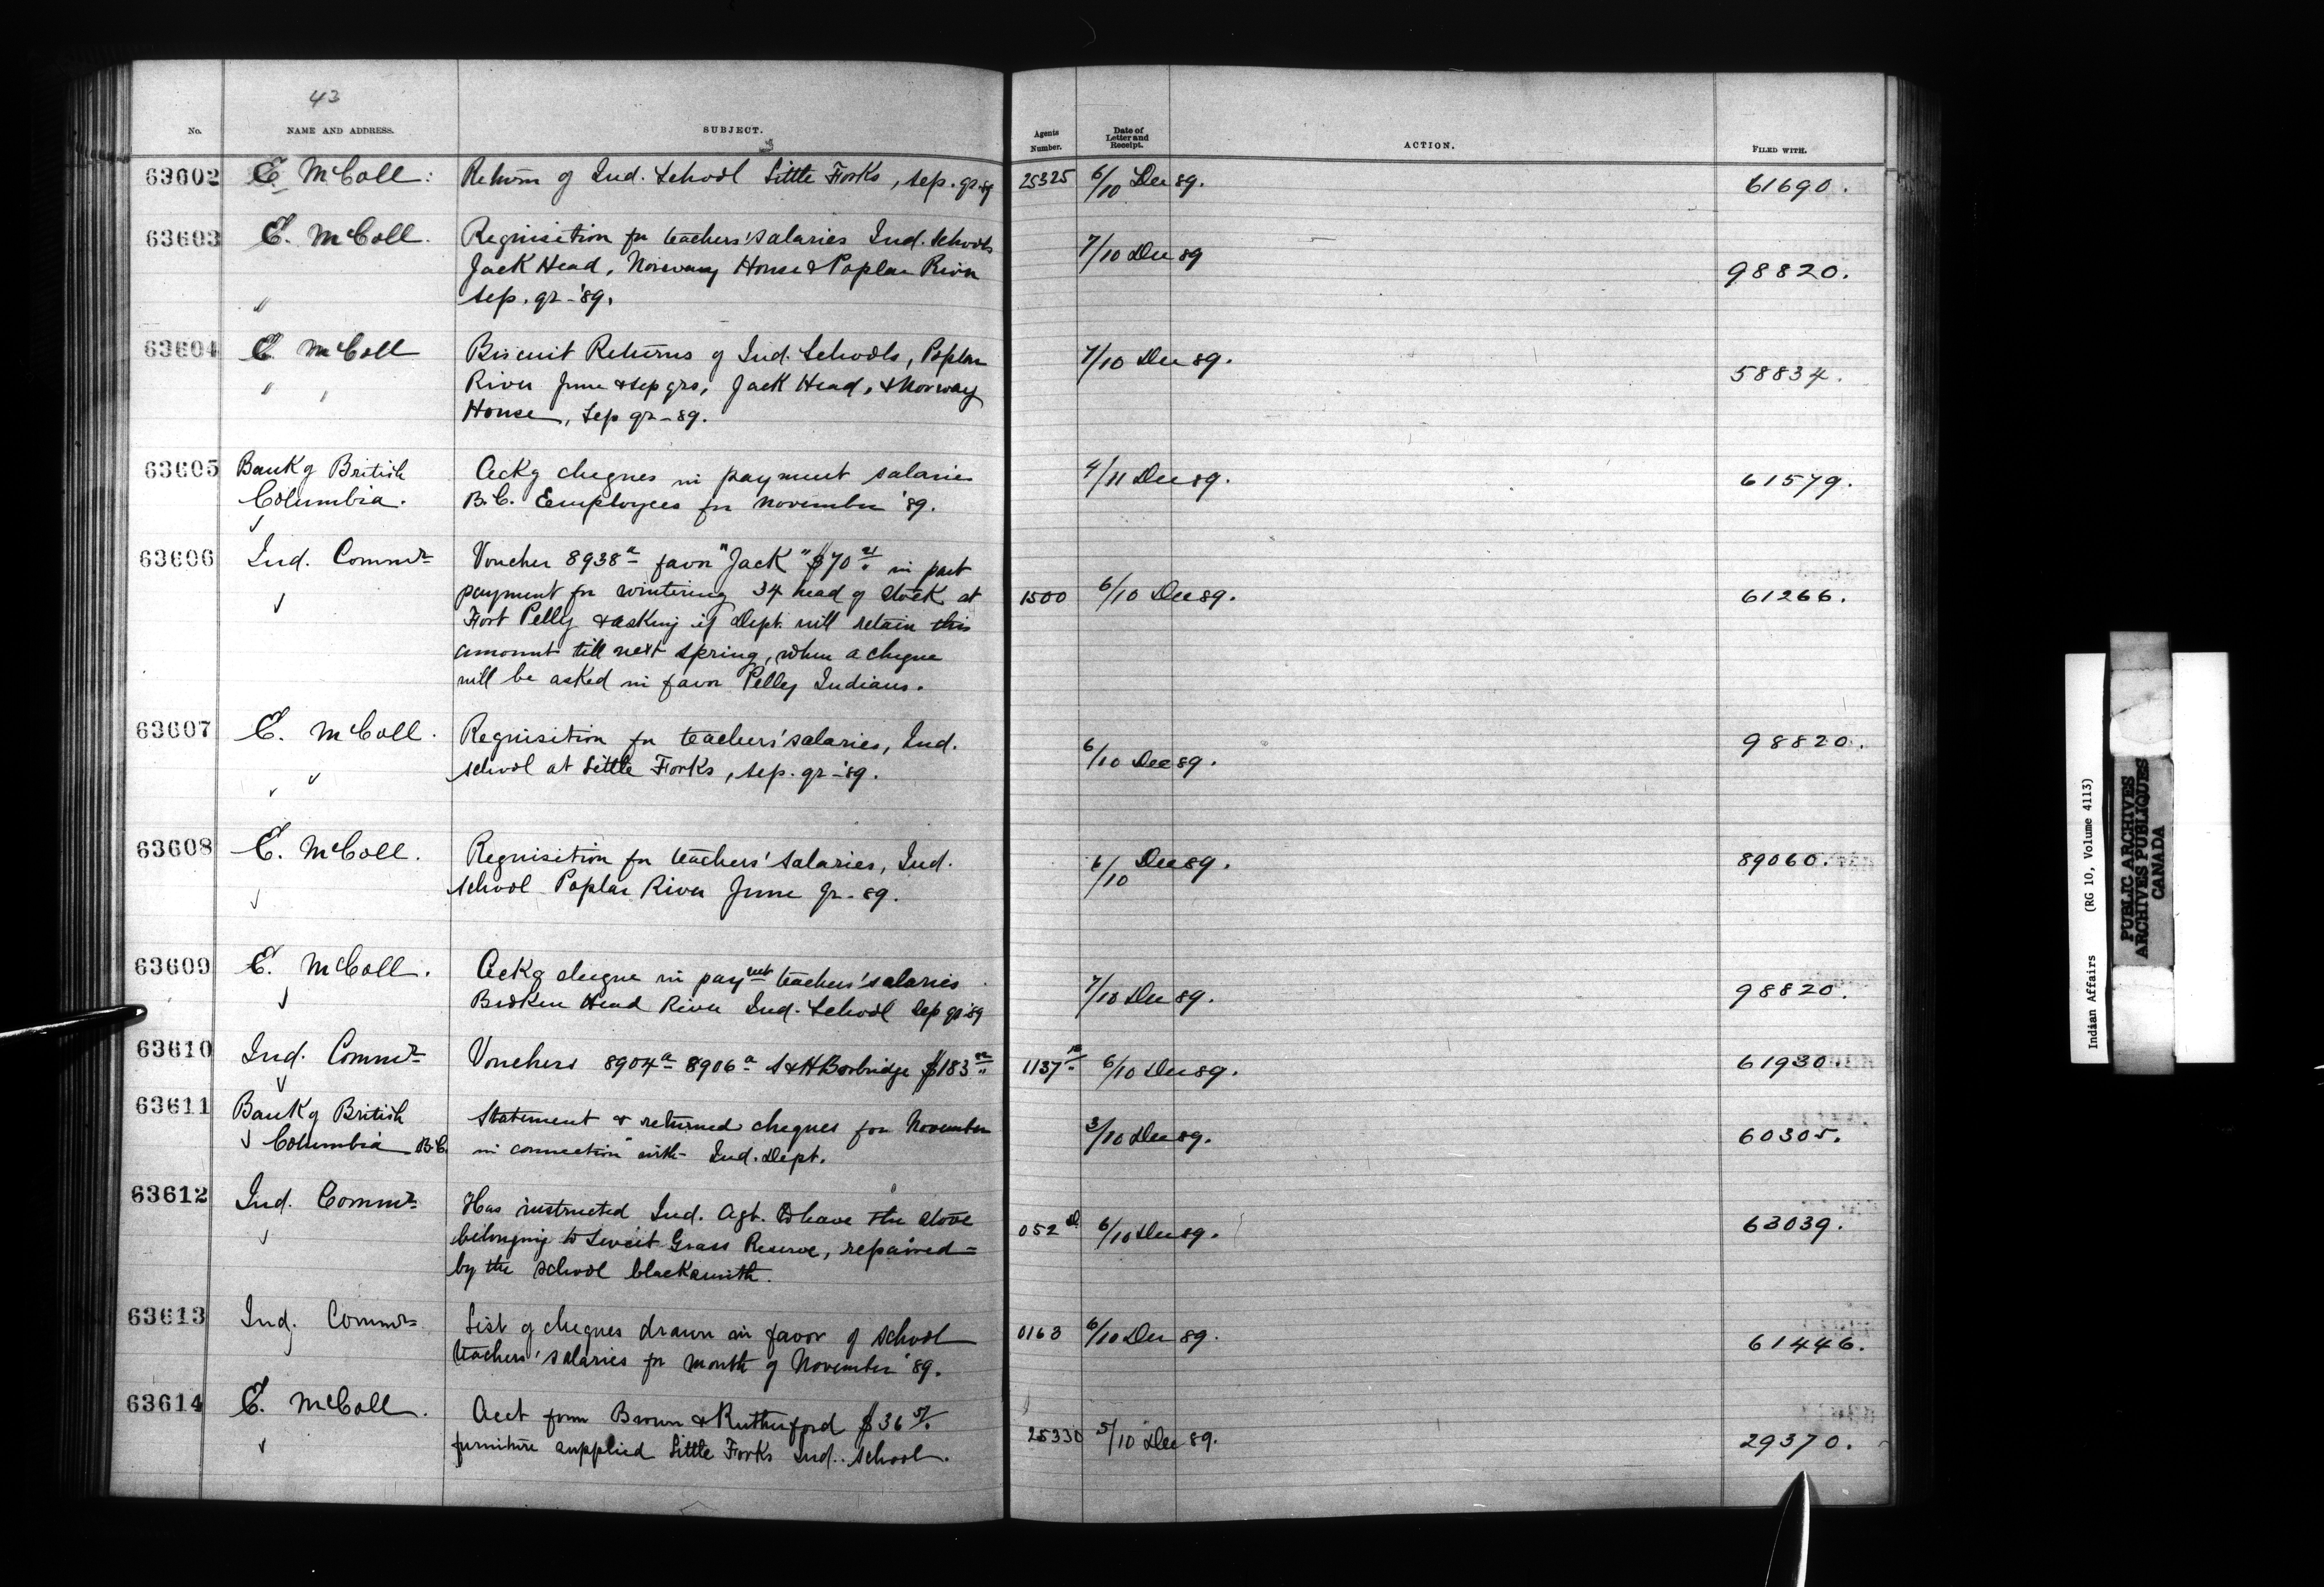 43
No. NAME AND ADDRESS. SUBJECT. Agents Number. Date of Letter and Receipt. ACTION. FILED WITH.
63602 E. McColl. Return of Ind. School Little Forks, Sep. qr 89 25325 6/10 Dec 89. 61690.
63603 E. McColl. Requisition for teachers' salaries Ind. Schools
Jack Head, Norway House & Poplar River 7/10 Dec 89 98820.
" Sep. qr - '89.
63604 E. McColl Biscuit Returns of Ind. Schools, Poplar 7/10 Dec 89.
" " River June & Sep qrs, Jack Head, & Norway 58834.
House, Sep qr - 89.
63605 Bank of British Ackg cheques in payment salaries 4/11 Dec 89. 61579.
Columbia. B.C. Employees for November '89.
63606 Ind. Commr Voucher 8938a favor "Jack" $70 in part
payment for wintering 34 head of stock at 1500 6/10 Dec 89. 61266.
Fort Pelly & asking if Dept. will retain this
amount till next spring, when a cheque
will be asked in favor Pelly Indians.
63607 E. McColl. Requisition for teachers' salaries, Ind. 98820.
school at Little Forks, Sep. qr - '89. 6/10 Dec 89.
63608 E. McColl. Requisition for teachers' salaries, Ind. 6/10 Dec 89. 89060.
School Poplar River June qr - 89.
63609 E. McColl. Ackg cheque in payment teachers' salaries
Broken Head River Ind. School Sep qr 89 7/10 Dec 89. 98820.
63610 Ind. Commr Vouchers 8904a 8906a S & H Borbridge $183 1137 6/10 Dec 89. 61930
63611 Bank of British Statement & returned cheques for November
Columbia B.C. in connection with Ind. Dept. 3/10 Dec 89. 60305.
63612 Ind. Commr Has instructed Ind. Agt. to have the stove
belonging to Sweet Grass Reserve, repaired 052 6/10 Dec 89. 63039.
by the school blacksmith.
63613 Ind. Commr List of cheques drawn in favor of school 0163 6/10 Dec 89.
teachers' salaries for month of November '89. 61446.
63614 E. McColl. Acct from Brown & Rutherford $36 5/.
furniture supplied Little Forks Ind. School. 25330 5/10 Dec 89. 29370.
Indian Affairs (RG 10, Volume 4113)
PUBLIC ARCHIVES
ARCHIVES PUBLIQUES
CANADA